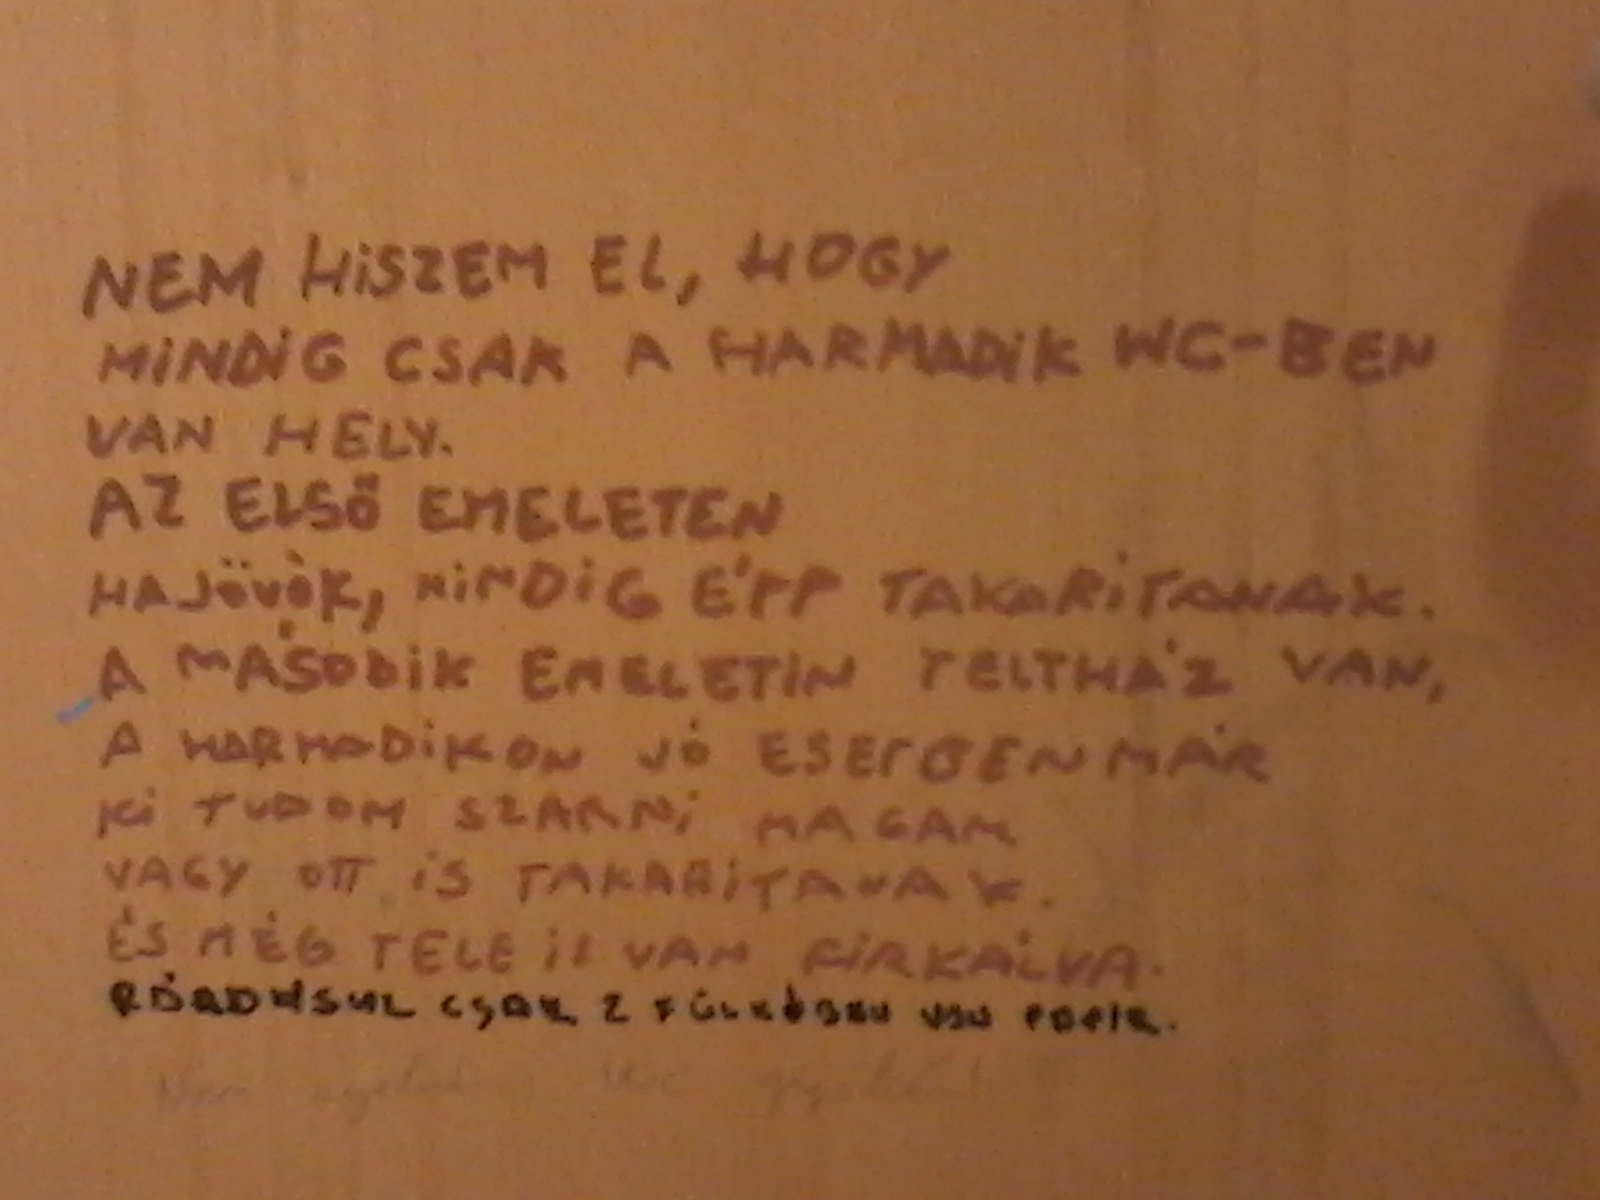 NEM HISZEM EL, HOGY
MINDIG CSAK A HARMADIK WC-BEN
VAN HELY.
AZ ELSŐ EMELETEN
HAJÖVÖK, MINDIG ÉPP TAKARÍTANAK.
A MÁSODIK EMELETIN TELTHÁZ VAN,
A HARMADIKON JÓ ESETBEN MÁR
KI TUDOM SZARNI MAGAM
VAGY OTT IS TAKARÍTANAK.
ÉS MÉG TELE IS VAN FIRKÁLVA.
RÁADÁSUL CSAK 2 FÜLKÉBEN VAN PAPÍR.
Nem